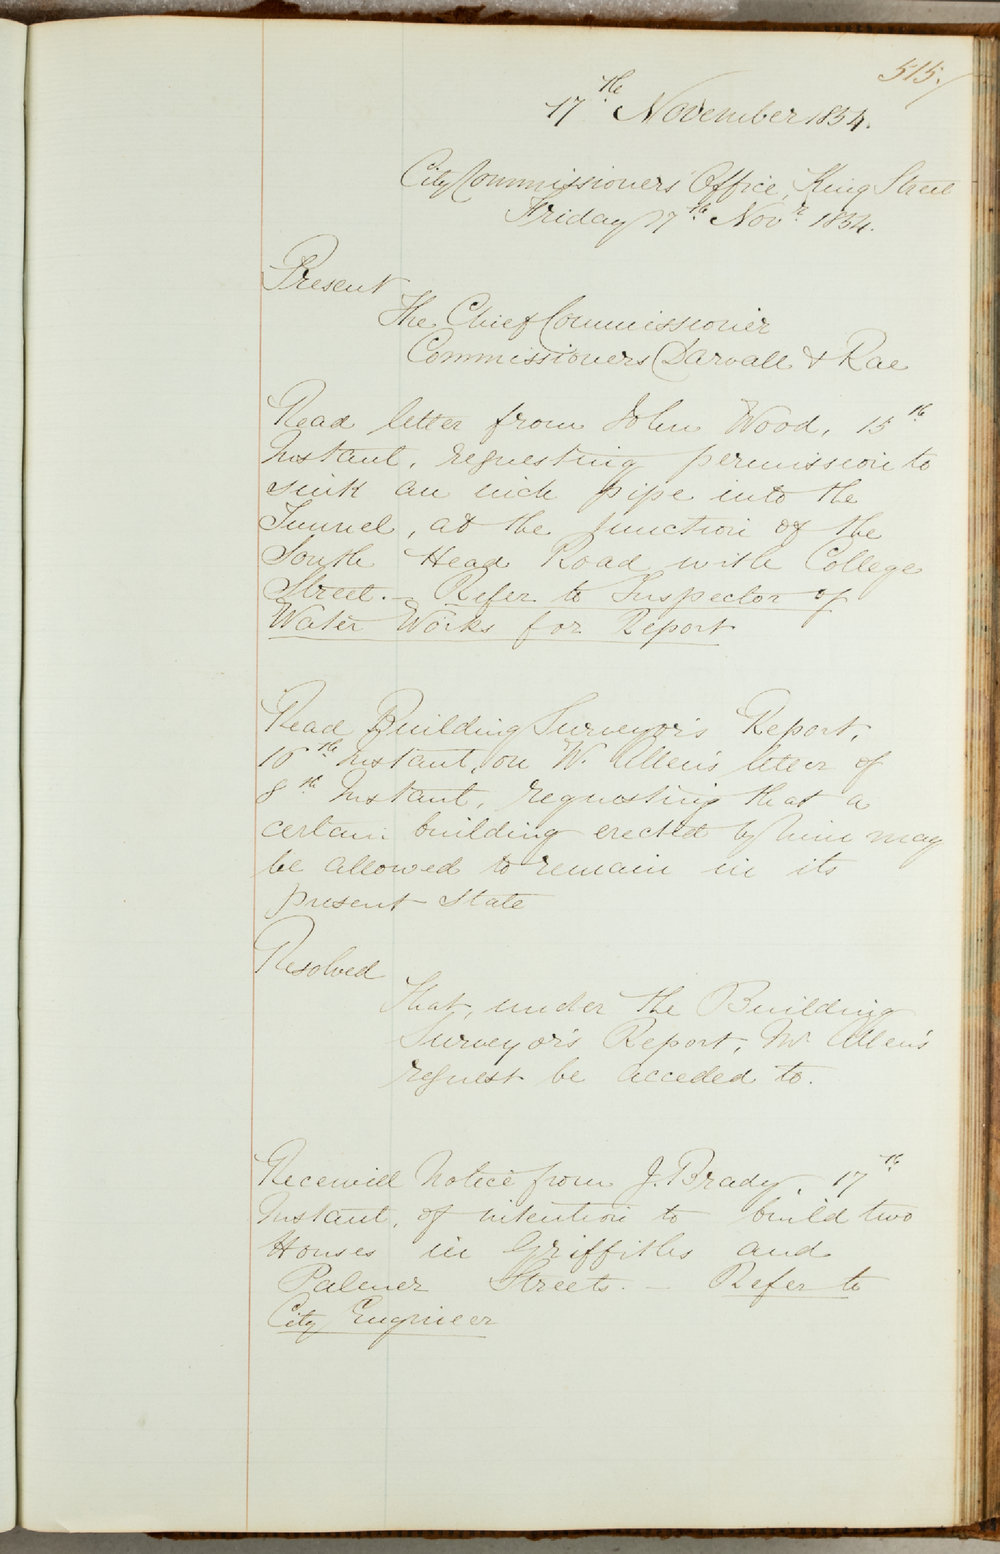 515.
17th November 1854.
City Commissioners' Office, King Street
Friday 17th Novr. 1854.
Present
The Chief Commissioner
Commissioners Darvall & Rae
Read letter from John Wood, 15th
Instant, requesting permission to
sink an inch pipe into the
Tunnel, at the junction of the
South Head Road with College
Street. — Refer to Inspector of
Water Works for Report
Read Building Surveyor's Report,
16th Instant, on W. Allen's letter of
8th Instant, requesting that a
certain building erected by him may
be allowed to remain in its
present state
Resolved
That, under the Building
Surveyor's Report, Mr Allen's
request be acceded to.
Received Notice from J. Brady, 17th
Instant, of intention to build two
Houses in Griffiths and
Palmer Streets. — Refer to
City Engineer